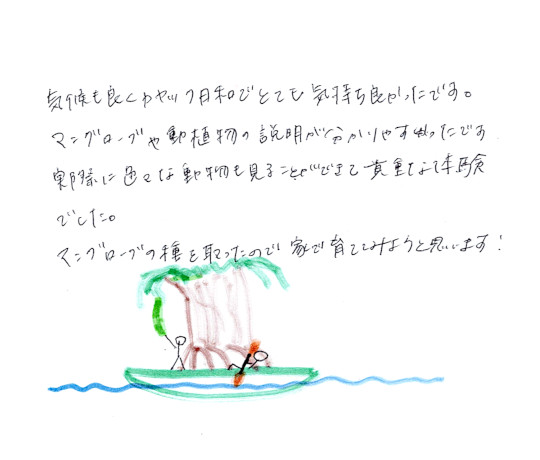 気候も良くカヤック日和でとても気持ち良かったです。
マングローブや動植物の説明が分かりやすかったです
実際に色々な動物も見ることができて貴重な体験
でした。
マングローブの種を取ったので家で育ててみようと思います!